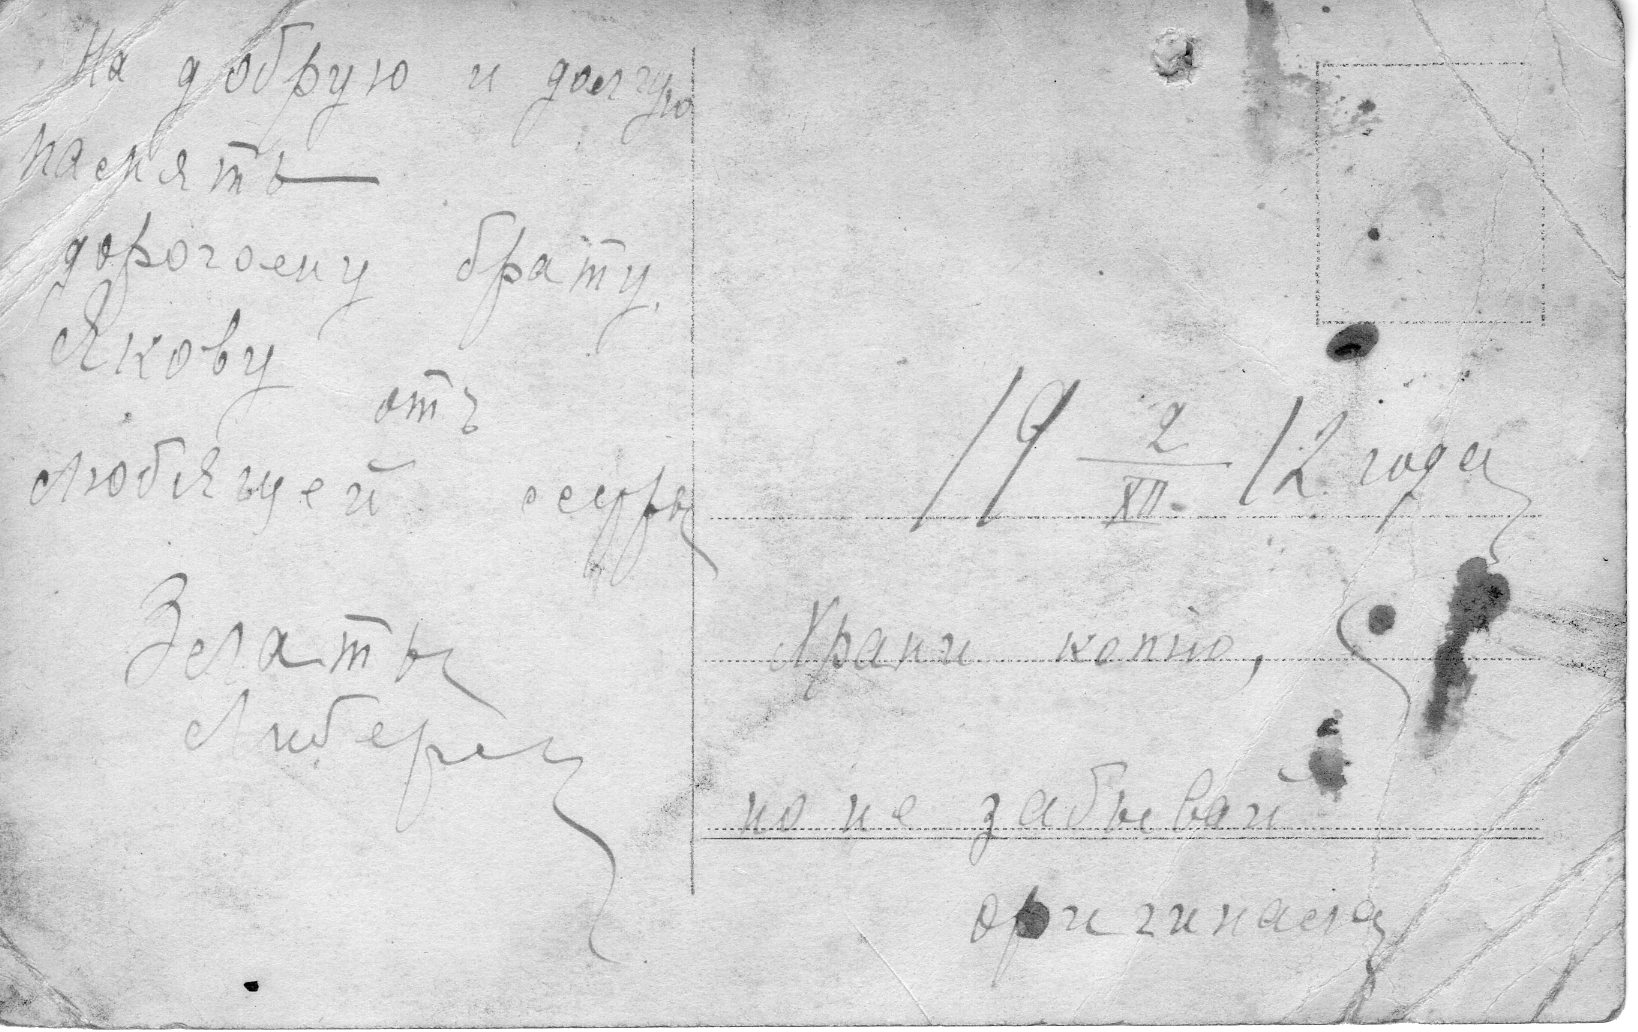 На добрую и долгую
память
дорогому брату
Якову
отъ
любящей сестры
Златы
19 2/XII 12 года
Храни копию,
но не забывай
оригинала